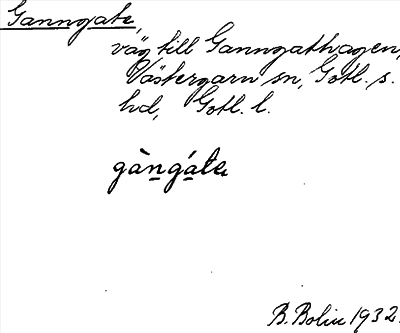 Ganngate,
väg till Ganngathagen,
Västergarn sn, Gotl. s.
hd, Gotl. l.
gàngátę
B. Bolin 1932.